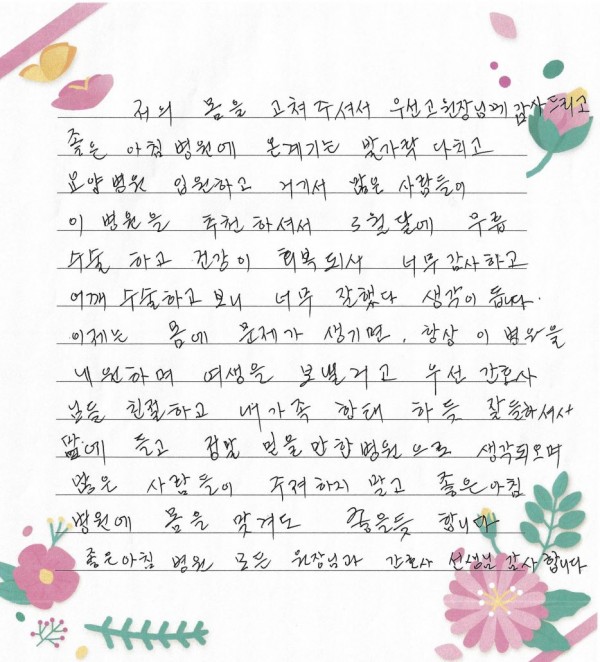 저의 몸을 고쳐주셔서 우선 고원장님께 감사드리고
좋은 아침 병원에 온계기는 발가락 다치고
요양병원 입원하고 거기서 많은 사람들이
이 병원을 추천하셔서 3월달에 무릎
수술 하고 건강이 회복되서 너무 감사하고
어깨 수술하고 보니 너무 잘했다 생각이 듭니다.
이제는 몸에 문제가 생기면, 항상 이 병원을
내원하며 여생을 보낼거고 우선 간호사
님들 친절하고 내가족 한태 하듯 잘들하셔서
맘에 들고 정말 믿을만한 병원으로 생각되오며
많은 사람들이 주저하지 말고 좋은아침
병원에 몸을 맞겨도 좋을듯 합니다
좋은아침 병원 모든 원장님과 간호사 선생님 감사합니다